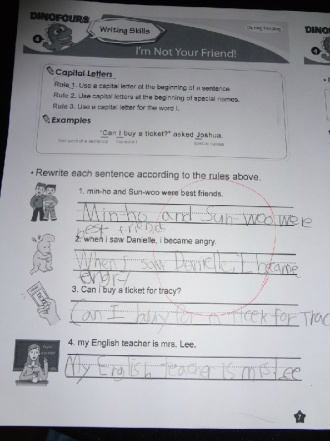 DINOFOURS
Writing Skills
DINO
4
I'm Not Your Friend!
Capital Letters
Rule 1. Use a capital letter at the beginning of a sentence.
Rule 2. Use capital letters at the beginning of special names.
Rule 3. Use a capital letter for the word I.
Examples
"Can I buy a ticket?" asked Joshua.
• Rewrite each sentence according to the rules above.
1. min-ho and Sun-woo were best friends.
Min-ho and Sun-woo were
best friends
2. when i saw Danielle, i became angry.
When I saw Danielle, I became
angry
3. Can i buy a ticket for tracy?
Can I buy for
4. my English teacher is mrs. Lee.
My English teacher is mrs Lee
7